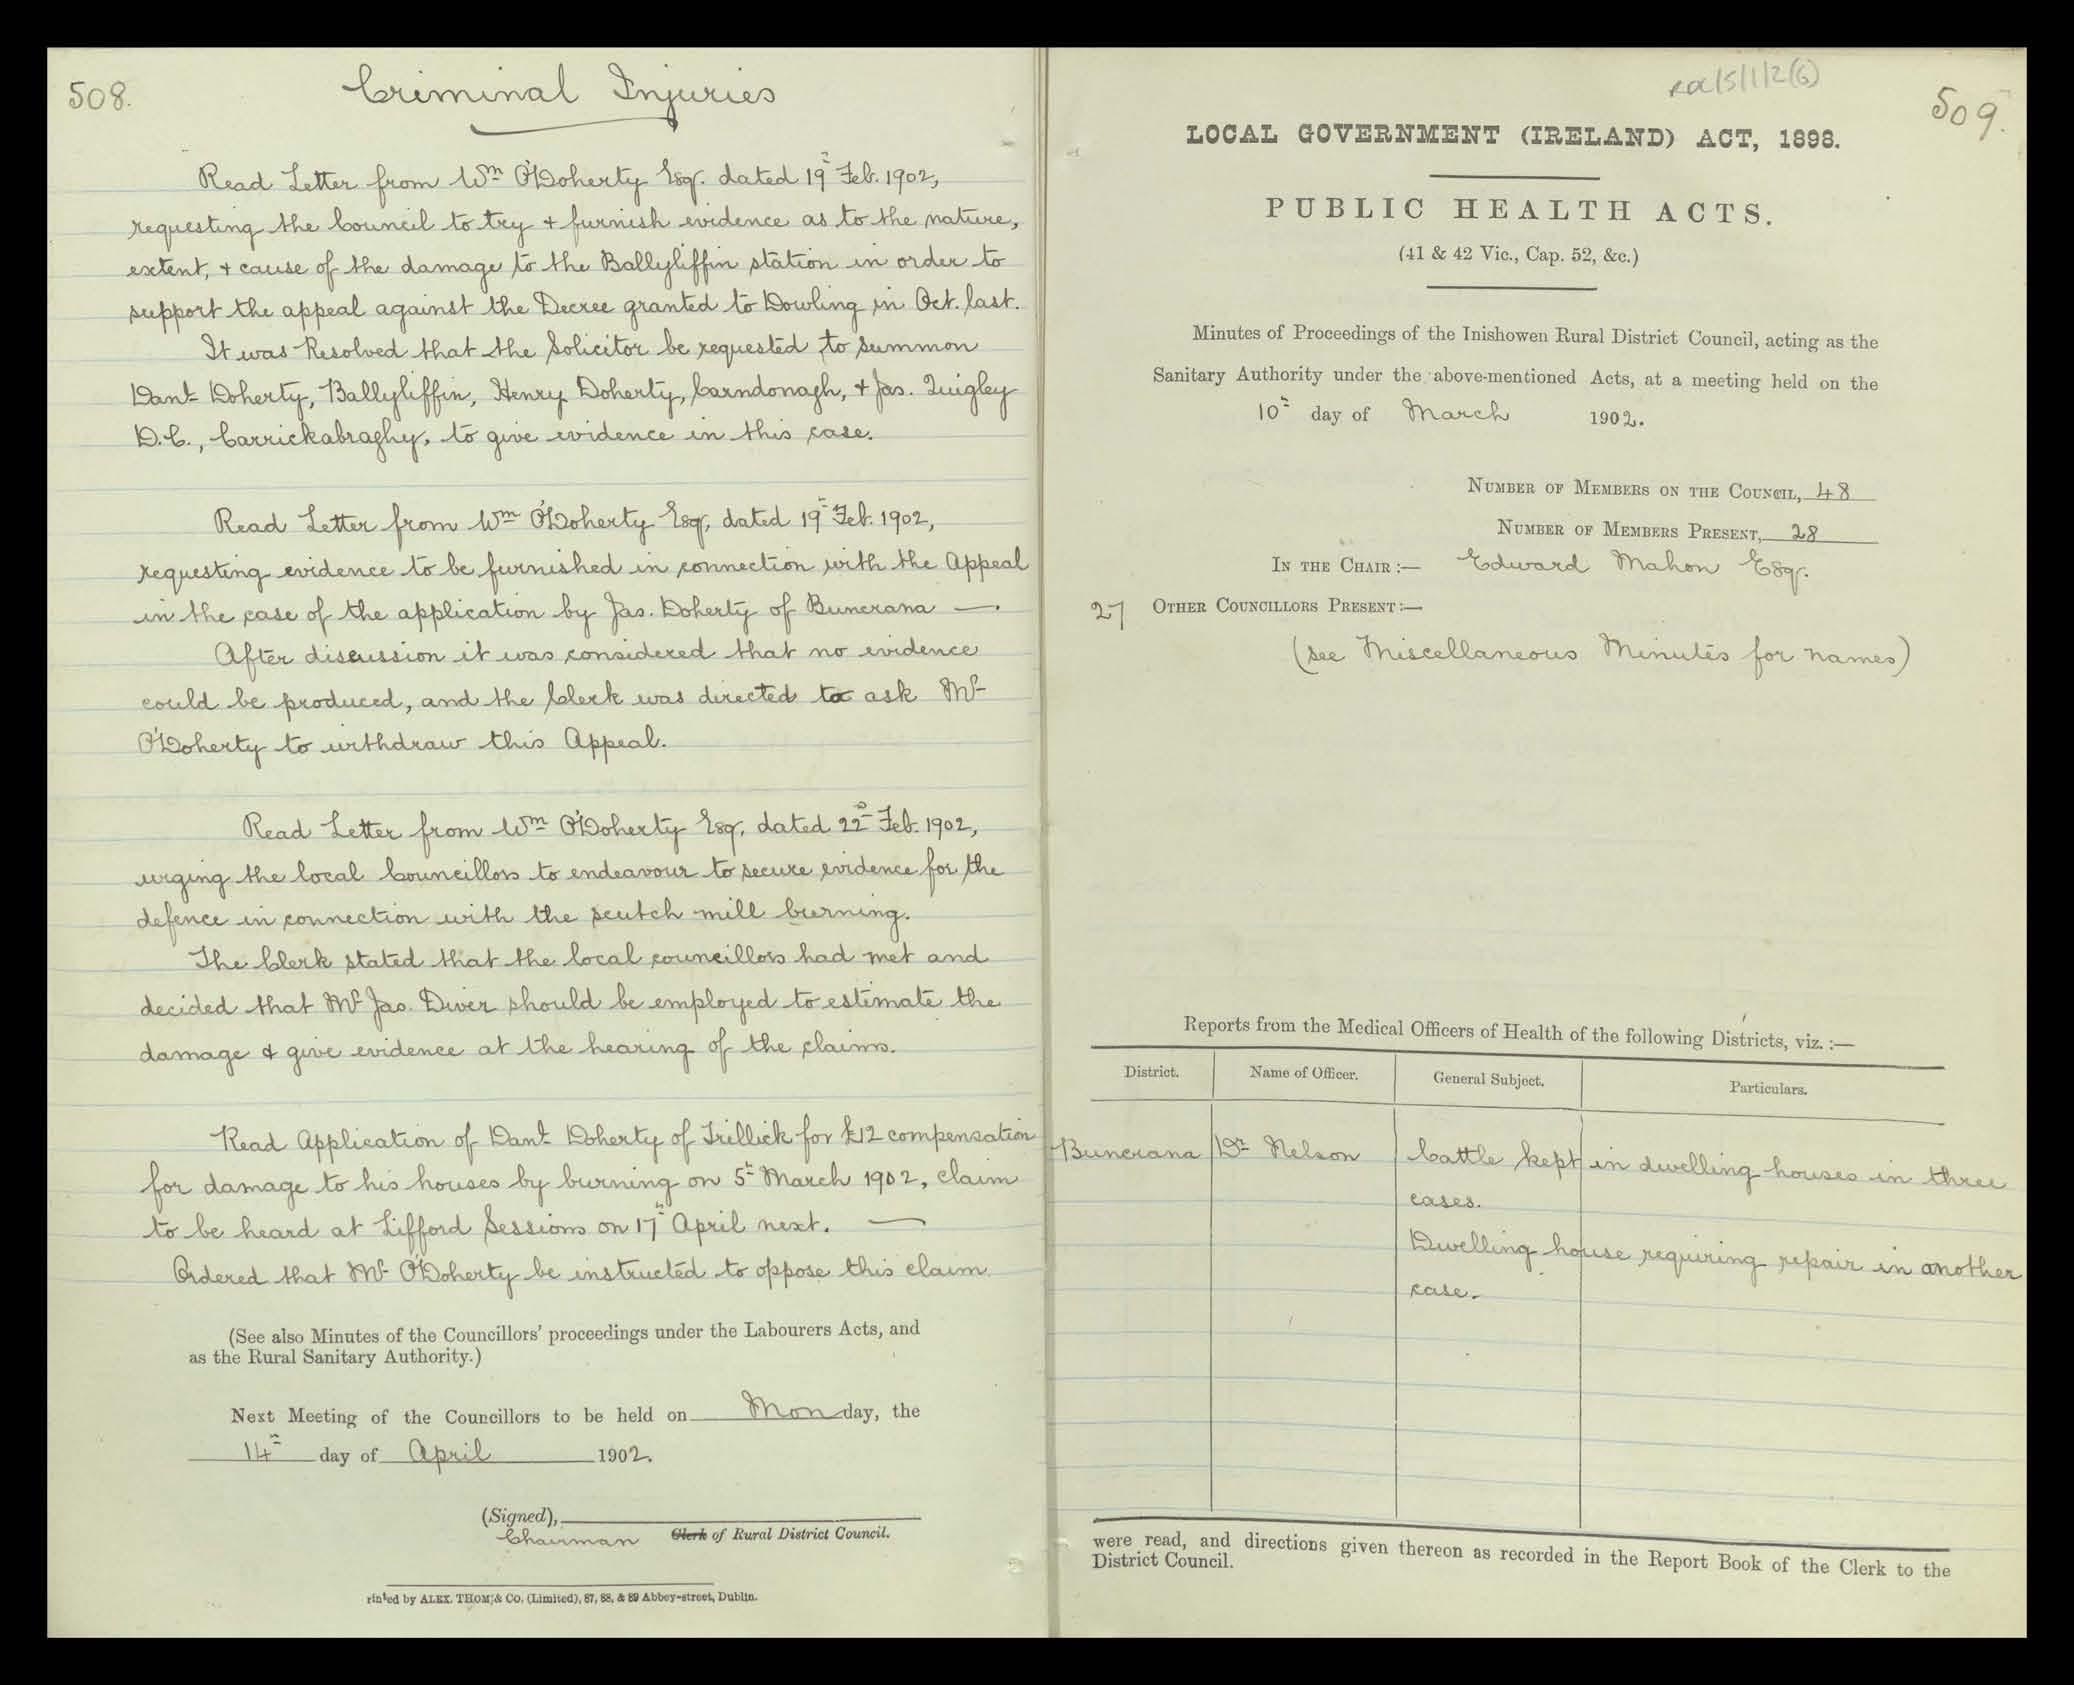 508.
Criminal Injuries
Read Letter from Wm O'Doherty Esq. dated 19th Feb. 1902,
requesting the Council to try & furnish evidence as to the nature,
extent, & cause of the damage to the Ballyliffin station in order to
support the appeal against the Decree granted to Dowling in Oct. last.
It was Resolved that the Solicitor be requested to summon
Danl Doherty, Ballyliffin, Henry Doherty, Carndonagh, & Jas. Quigley
D.C., Carrickabraghy, to give evidence in this case.
Read Letter from Wm O'Doherty Esq. dated 19th Feb. 1902,
requesting evidence to be furnished in connection with the Appeal
in the case of the application by Jas. Doherty of Buncrana —.
After discussion it was considered that no evidence
could be produced, and the Clerk was directed to ask Mr
O'Doherty to withdraw this Appeal.
Read Letter from Wm O'Doherty Esq. dated 22nd Feb. 1902,
urging the local Councillors to endeavour to secure evidence for the
defence in connection with the scutch mill burning.
The Clerk stated that the local councillors had met and
decided that Mr Jas. Diver should be employed to estimate the
damage & give evidence at the hearing of the claims.
Read Application of Danl Doherty of Trillick for £12 compensation
for damage to his houses by burning on 5th March 1902, claim
to be heard at Lifford Sessions on 17th April next. —
Ordered that Mr O'Doherty be instructed to oppose this claim.
(See also Minutes of the Councillors' proceedings under the Labourers Acts, and
as the Rural Sanitary Authority.)
Next Meeting of the Councillors to be held on Monday, the
14th day of April 1902.
(Signed),
Chairman Clerk of Rural District Council.
rinted by ALEX. THOM & CO. (Limited), 87, 88, & 89 Abbey-street, Dublin.
RDC/5/1/2(6)
509.
LOCAL GOVERNMENT (IRELAND) ACT, 1898.
PUBLIC HEALTH ACTS.
(41 & 42 Vic., Cap. 52, &c.)
Minutes of Proceedings of the Inishowen Rural District Council, acting as the
Sanitary Authority under the above-mentioned Acts, at a meeting held on the
10th day of March 1902.
NUMBER OF MEMBERS ON THE COUNCIL, 48
NUMBER OF MEMBERS PRESENT, 28
IN THE CHAIR:— Edward Mahon Esq.
27 OTHER COUNCILLORS PRESENT:—
(see Miscellaneous Minutes for names)
Reports from the Medical Officers of Health of the following Districts, viz.:—
District. Name of Officer. General Subject. Particulars.
Buncrana Dr Nelson Cattle kept in dwelling houses in three
cases.
Dwelling house requiring repair in another
case.
were read, and directions given thereon as recorded in the Report Book of the Clerk to the
District Council.